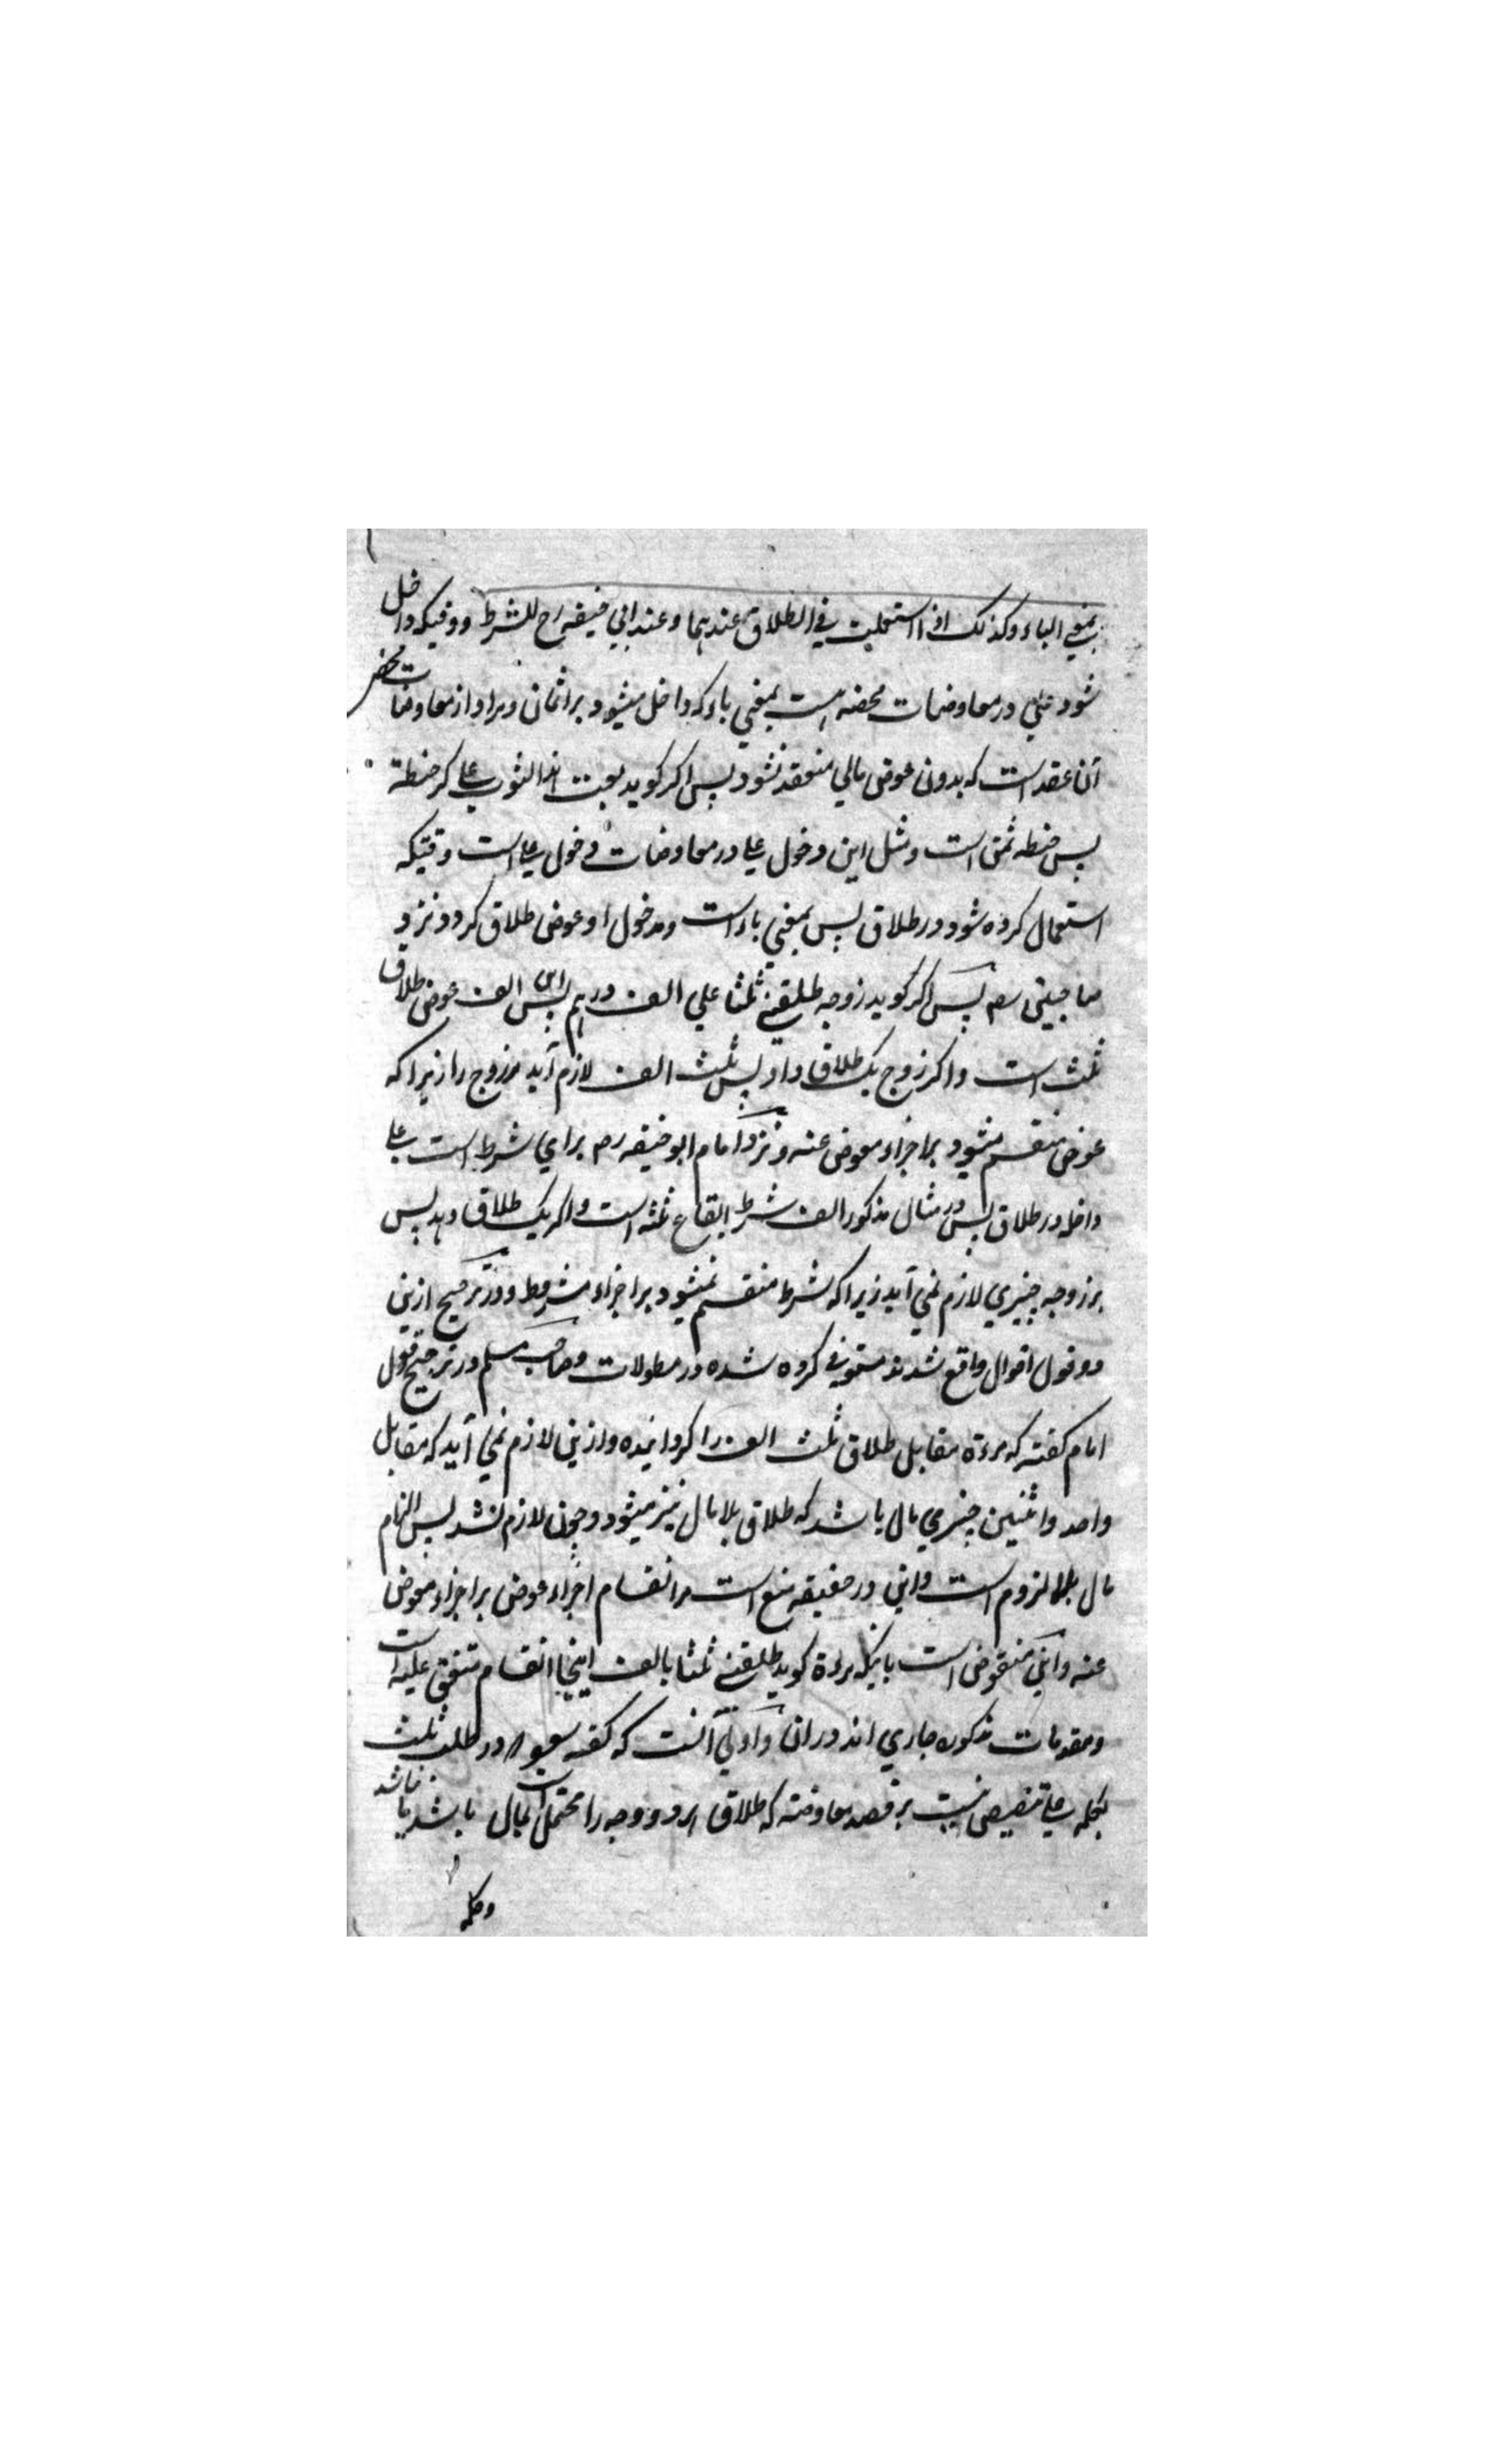 بمعني الباء وكذلك اذا استعملت في الطلاق عندهما وعند ابي حنيفه رح للشرط ووقتيكه داخل
شود علي در معاوضات محضه است بمعني باء كه داخل ميشود بر اثمان ومراد از معاوضات محض
آن عقد است كه بدون عوض مالي منعقد نشود پس اكر كويد بعت هذا الثوب علي كر حنطة
پس حنطه ثمن است ومثل اين دخول علي در معاوضات دخول علي است وقتيكه
استعمال كرده شود در طلاق پس بمعني باء است ومدخول او عوض طلاق كردد نزد
صاحبين رحم پس اكر كويد زوجه طلقني ثلثا علي الف درهم پس اين الف عوض طلاق
ثلث است واكر زوج يك طلاق داد پس ثلث الف لازم آيد مر زوج را زيرا كه
عوض منقسم ميشود بر اجزاء معوض عنه ونزد امام ابو حنيفه رحم براي شرط است علي
داخله در طلاق پس در مثال مذكور الف شرط ايقاع ثلثه است واكر يك طلاق دهد پس
بر زوجه چيزي لازم نمي آيد زيرا كه شرط منقسم نميشود بر اجزاء مشروط ودر ترجيح ازين
دو قول اقوال واقع شدند مستوفي كرده شده در مطولات وصاحب مسلم در ترجيح قول
امام كفته كه مرءة مقابل طلاق ثلث الف را كردانيده وازين لازم نمي آيد كه مقابل
واحد واثنين چيزي مال باشد كه طلاق بلا مال نيز ميشود وچون لازم نشد پس الزام
مال بلا لزوم است واين در حقيقه منع است مر انقسام اجزاء عوض بر اجزاء معوض
عنه واين منقوض است بانيكه مرءة كويد طلقني ثلثا بالف اينجا انقسام متفق عليه است
ومقدمات مذكوره جاري اند دران واولي آنست كه كفته شود در طلب ثلث
بكلمه علي تنصيص نيست بر قصد معاوضه كه طلاق هر دو وجه را محتمل است بمال باشد يا نباشد
وكلمه